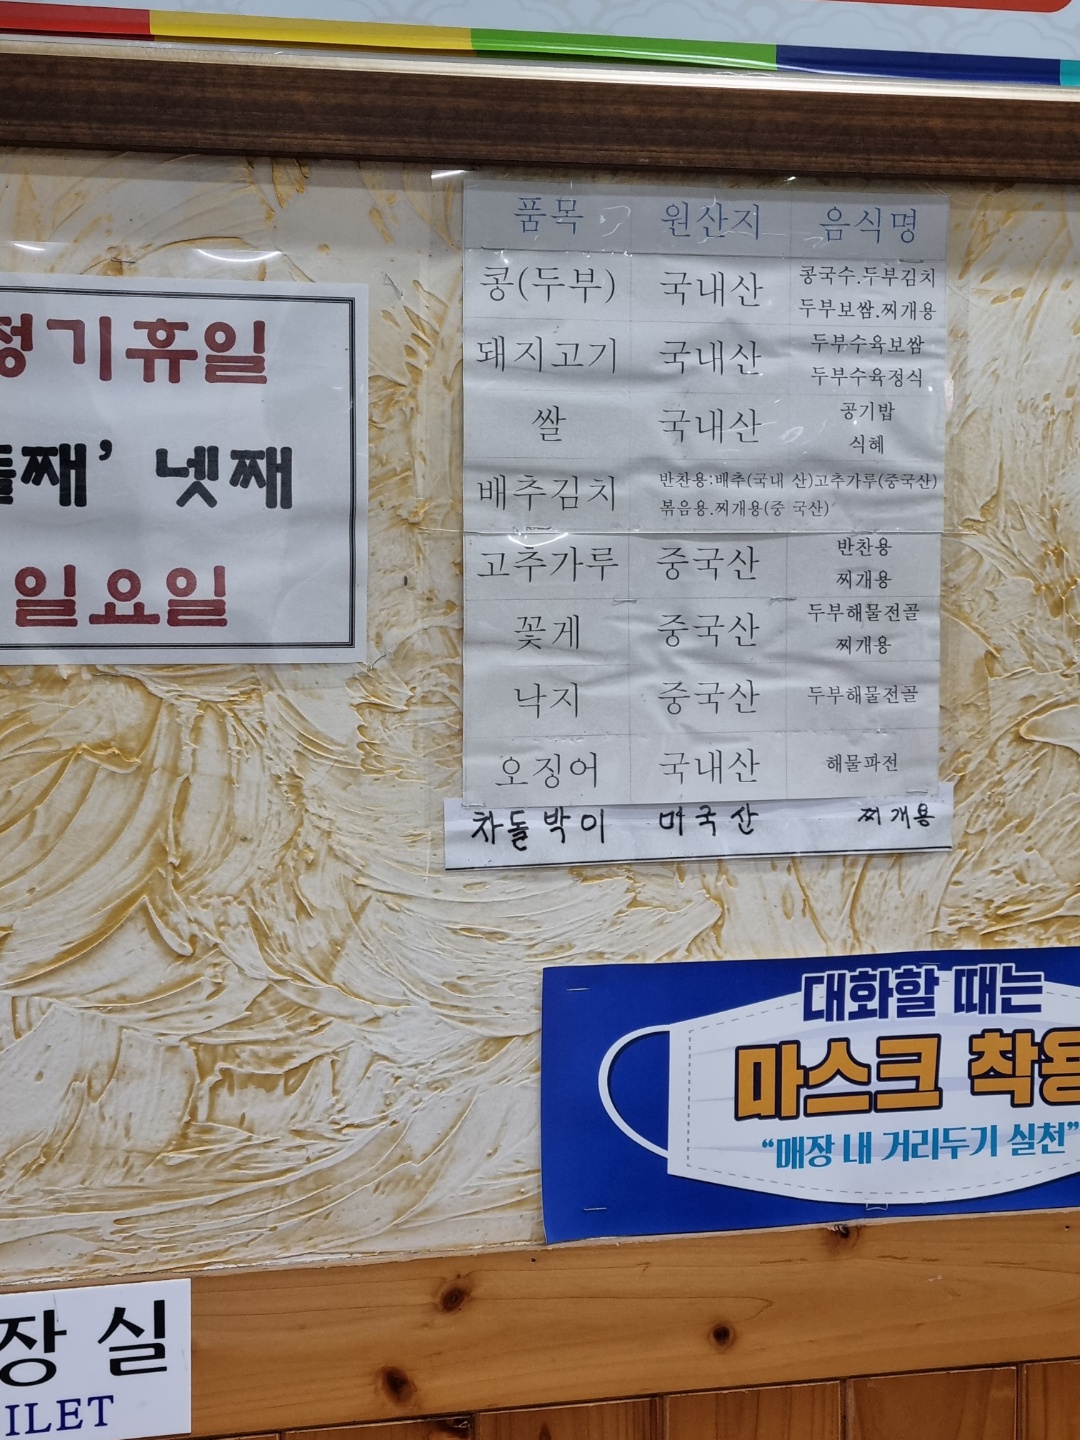 정기휴일
둘째’ 넷째
일요일
품목 원산지 음식명
콩(두부) 국내산 콩국수.두부김치
두부보쌈.찌개용
돼지고기 국내산 두부수육보쌈
두부수육정식
쌀 국내산 공기밥
식혜
배추김치 반찬용:배추(국내 산)고추가루(중국산)
볶음용.찌개용(중 국산)
고추가루 중국산 반찬용
찌개용
꽃게 중국산 두부해물전골
찌개용
낙지 중국산 두부해물전골
오징어 국내산 해물파전
차돌박이 미국산 찌개용
대화할 때는
마스크 착용
“매장 내 거리두기 실천”
장실
ILET